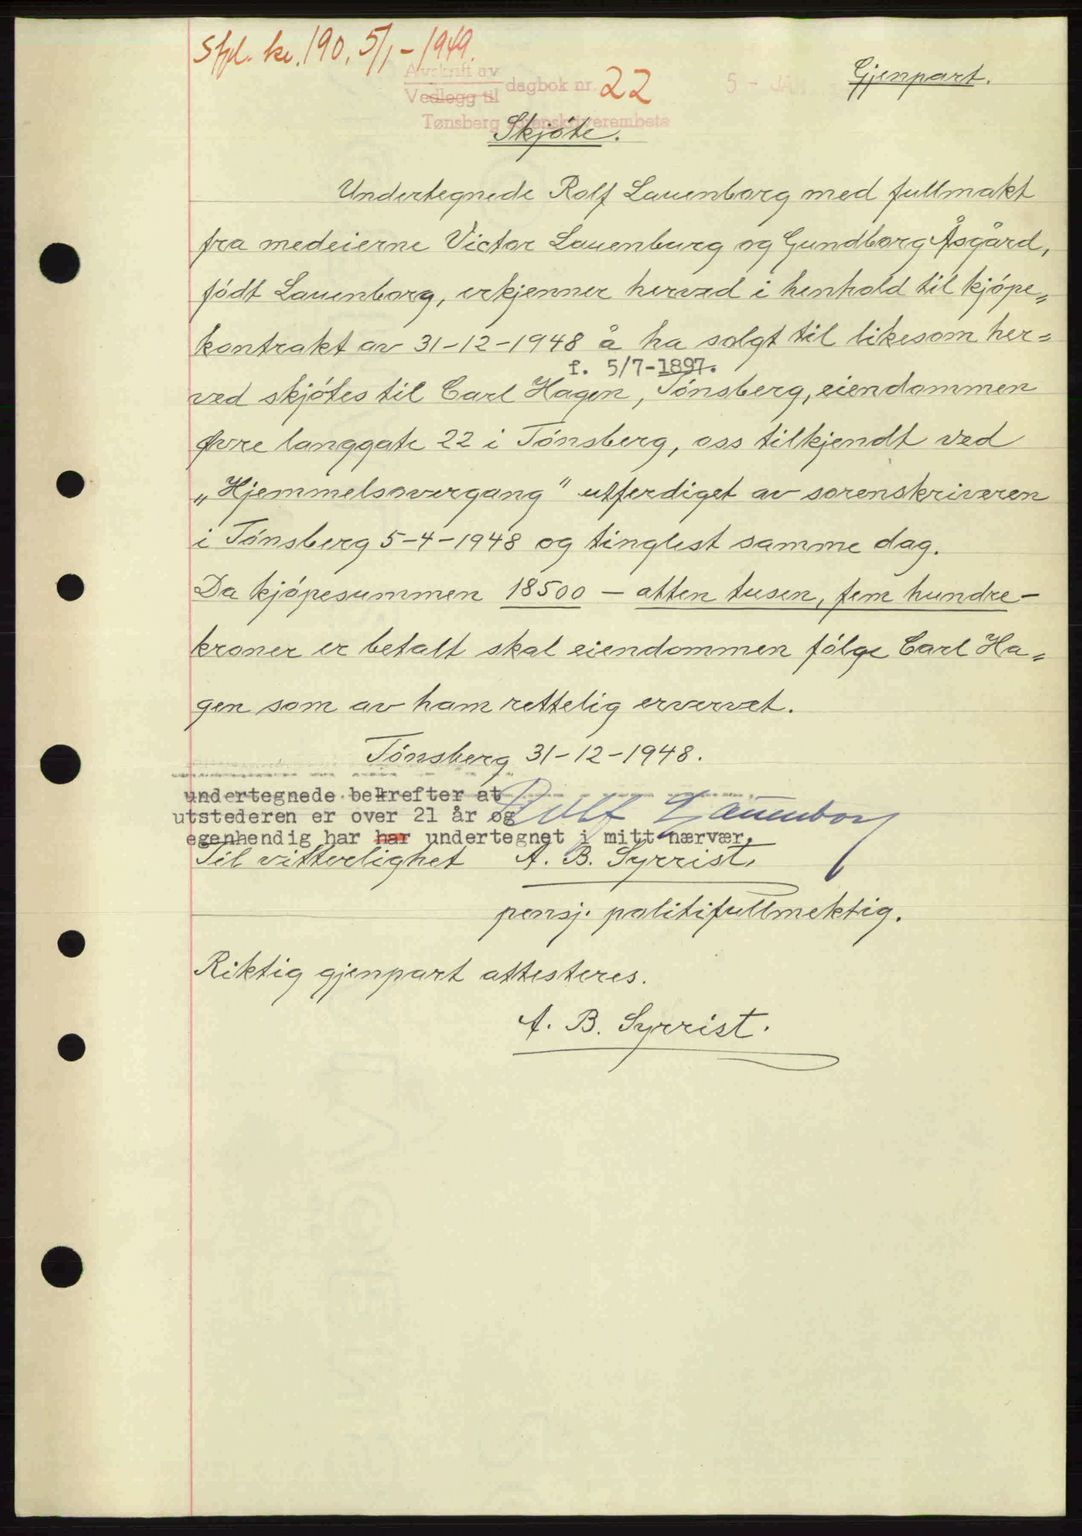 Stpl. kr. 190, 5/1-1949.
Avskrift av
Vedlegg til dagbok nr. 22
5 - JAN.
Gjenpart.
Tønsberg sorenskriverembete
Skjöte.
Undertegnede Rolf Lauenborg med fullmakt
fra medeierne Victor Lauenburg og Gundborg Åsgård,
födt Lauenborg, erkjenner herved i henhold til kjöpe=
kontrakt av 31-12-1948 å ha solgt til likesom her=
f. 5/7-1897.
ved skjötes til Carl Hagen, Tönsberg, eiendommen
Øvre langgate 22 i Tönsberg, oss tilkjendt ved
„Hjemmelsovergang" utferdiget av sorenskriveren
i Tönsberg 5-4-1948 og tinglest samme dag.
Da kjöpesummen 18500 — atten tusen, fem hundre—
kroner er betalt skal eiendommen fölge Carl Ha=
gen som av ham rettelig ervervet.
Tönsberg 31-12-1948.
undertegnede bekrefter at
utstederen er over 21 år og
Rolf Lauenborg
egenhendig har har undertegnet i mitt nærvær.
Til vitterlighet A. B. Syrrist.
pensj. politifullmektig.
Riktig gjenpart attesteres.
A. B. Syrrist.